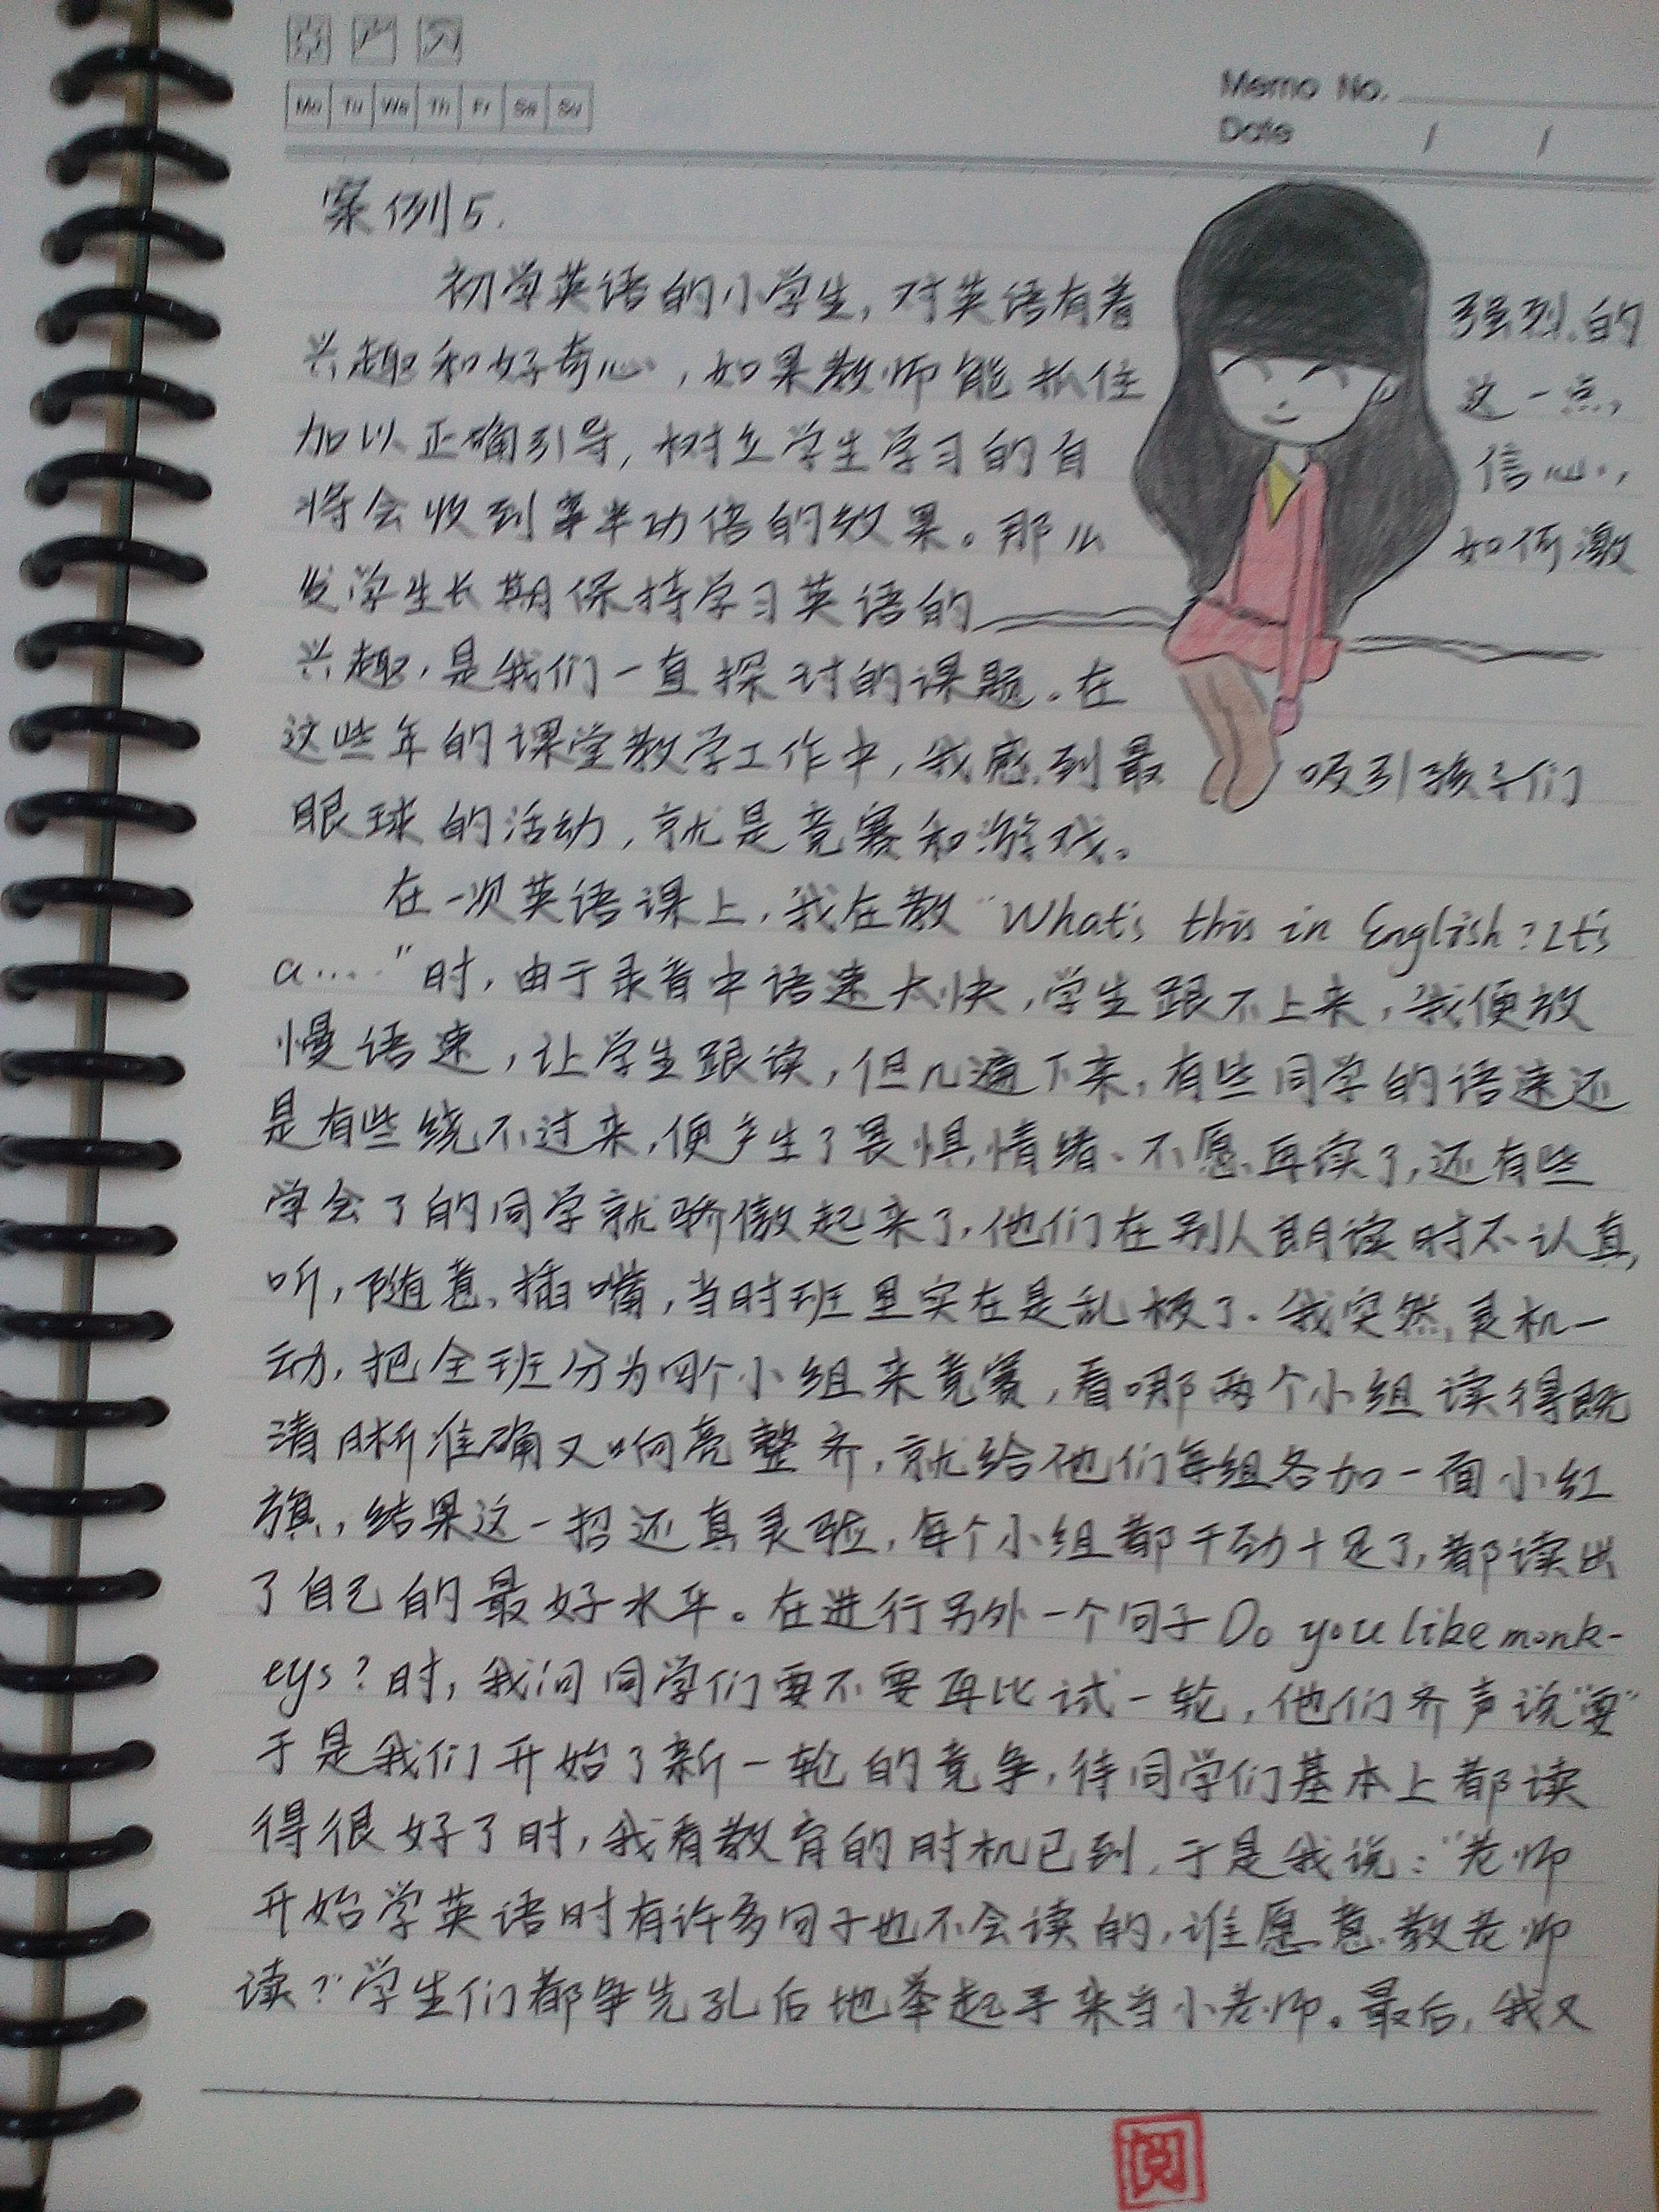 Mo Tu We Th Fr Sa Su
Memo No.
Date / /
案例5.
初学英语的小学生,对英语有着强烈的
兴趣和好奇心,如果教师能抓住这一点,
加以正确引导,树立学生学习的自信心,
将会收到事半功倍的效果。那么如何激
发学生长期保持学习英语的
兴趣,是我们一直探讨的课题.在
这些年的课堂教学工作中,我感到最吸引孩子们
眼球的活动,就是竞赛和游戏。
在一次英语课上,我在教"What's this in English?It's
a....."时,由于录音中语速太快,学生跟不上来,我便放
慢语速,让学生跟读,但几遍下来,有些同学的语速还
是有些绕不过来,便产生了畏惧情绪、不愿再读了,还有些
学会了的同学就骄傲起来了,他们在别人朗读时不认真,
听,随意插嘴,当时班里实在是乱极了.我突然灵机一
动,把全班分为四个小组来竞赛,看哪两个小组读得既
清晰准确又响亮整齐,就给他们每组各加一面小红
旗,结果这一招还真灵啦,每个小组都干劲十足了,都读出
了自己的最好水平。在进行另外一个句子Do you like monk-
eys?时,我问同学们要不要再比试一轮,他们齐声说"要"
于是我们开始了新一轮的竞争,待同学们基本上都读
得很好了时,我看教育的时机已到,于是我说:"老师
开始学英语时有许多句子也不会读的,谁愿意教老师
读?"学生们都争先孔后地举起手来当小老师。最后,我又
阅